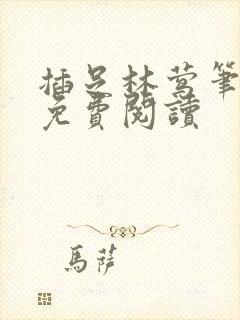 插足林莺筆
免費閱讀
馬薩